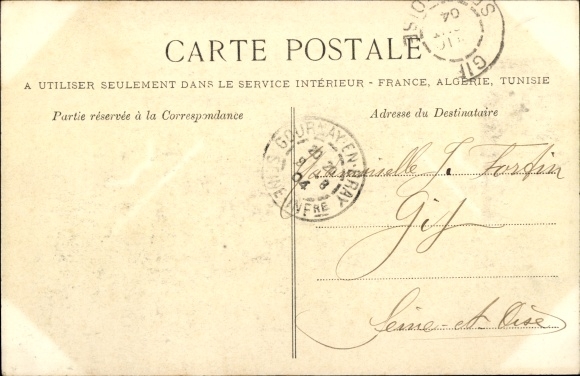 CARTE POSTALE
A UTILISER SEULEMENT DANS LE SERVICE INTÉRIEUR - FRANCE, ALGÉRIE, TUNISIE
Partie réservée à la Correspondance
Adresse du Destinataire
GOURNAY-EN-BRAY
SEINE INFRE
04
GIF
S
OISE
04
Mademoiselle J. Fortin
Gif
Seine-et-Oise